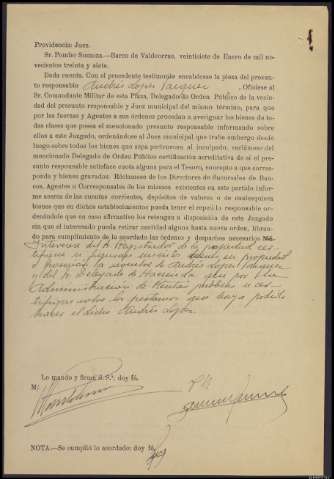 Providencia Juez
Sr. Pombo Somoza.—Barco de Valdeorras, veintisiete de Enero de mil no-
vecientos treinta y siete.
Dada cuenta. Con el precedente testimonio encabécese la pieza del presun-
to responsable Andrés López Vázquez, Ofíciese al
Sr. Comandante Militar de esta Plaza, Delegado de Orden Público de la vecin-
dad del presunto responsable y Juez municipal del mismo término, para que
por las fuerzas y Agentes a sus órdenes procedan a averiguar los bienes de to-
das clases que posea el mencionado presunto responsable informando sobre
ellos a este Juzgado, ordenándose al Juez municipal que trabe embargo desde
luego sobre todos los bienes que sepa pertenecen al inculpado, verifíquese del
mencionado Delegado de Orden Público certificación acreditativa de si el presun-
to responsable satisface cuota alguna para el Tesoro, concepto a que corres-
ponda y bienes gravados. Ofíciese a los Directores de Sucursales de Ban-
cos, Agentes o Corresponsales de los mismos existentes en este partido infor-
marse de las cuentas corrientes, depósitos de valores o de cualesquiera
bienes que en dichos establecimientos pueda tener el repetido responsable or-
denándole que en caso afirmativo los retengan a disposición de este Juzgado
sin que el interesado pueda retirar cantidad alguna hasta nueva orden,
librando para cumplimiento de lo acordado las órdenes y despachos necesarios
Interésese del Sr. Registrador de la propiedad cer-
tifique si
o posesión la de Andrés López Vázquez
y del Sr. Delegado de Hacienda que por la
Administración de Rentas públicas se cer-
tifique sobre los préstamos que haya podido
hacer el dicho Andrés López
Lo mando y firma S. S.ª; doy fé.
M.
NOTA.—Se cumplió lo acordado; doy fé.